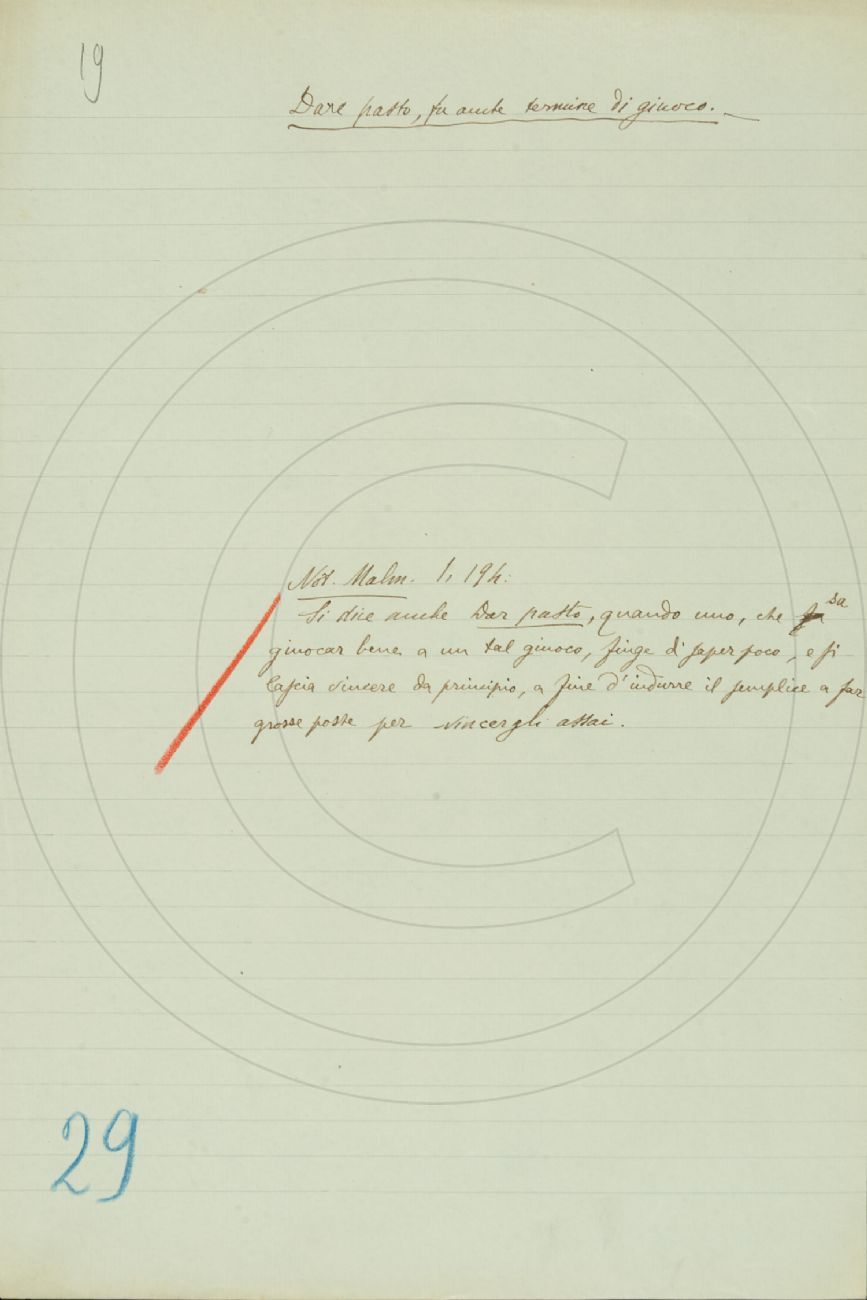 19
Dare pasto, fu anche termine di giuoco. —
Not. Malm. 1, 194:
Si dice anche Dar pasto, quando uno, che sa
giuocar bene a un tal giuoco, finge di saper poco, e si
lascia vincere da principio, a fine d'indurre il semplice a far
grosse poste per vincergli assai.
29